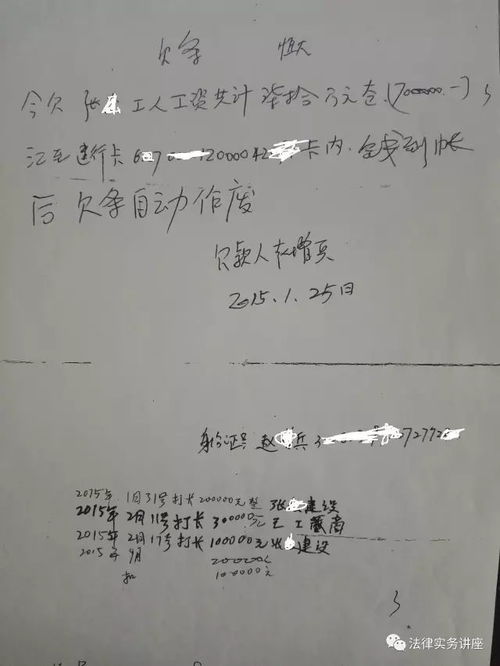 欠条
今欠 工人工资共计柒拾万元整(700000.一)
汇至建行卡6 7 120000 42 卡内,全线到帐
后欠条自动作废
欠款人 增兵
2015.1.25日
身份证号 赵 兵 3 7277
2015年 1月31号打卡200000元整 张 建设
2015年 2月11号打卡300000元 王 工 农商
2015年 2月17号打卡100000元 张 建设
2015 年 9月 200000
扣 100000元
法律实务讲座